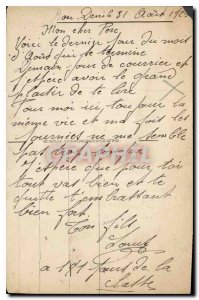 Bou Denib 31 Août 19
Mon cher Père
Voici le dernier jour du mois
d'Août qui se termine
Demain jour de courrier et
j'espère avoir le grand
plaisir de te lire
Pour moi ici, toujours la
même vie et ma foi les
journées ne me semble
pas
J'espère que pour toi
tout vas bien et te
quitte t'embrassant
bien fort.
Ton fils
Louis
a 181 jours de la
classe